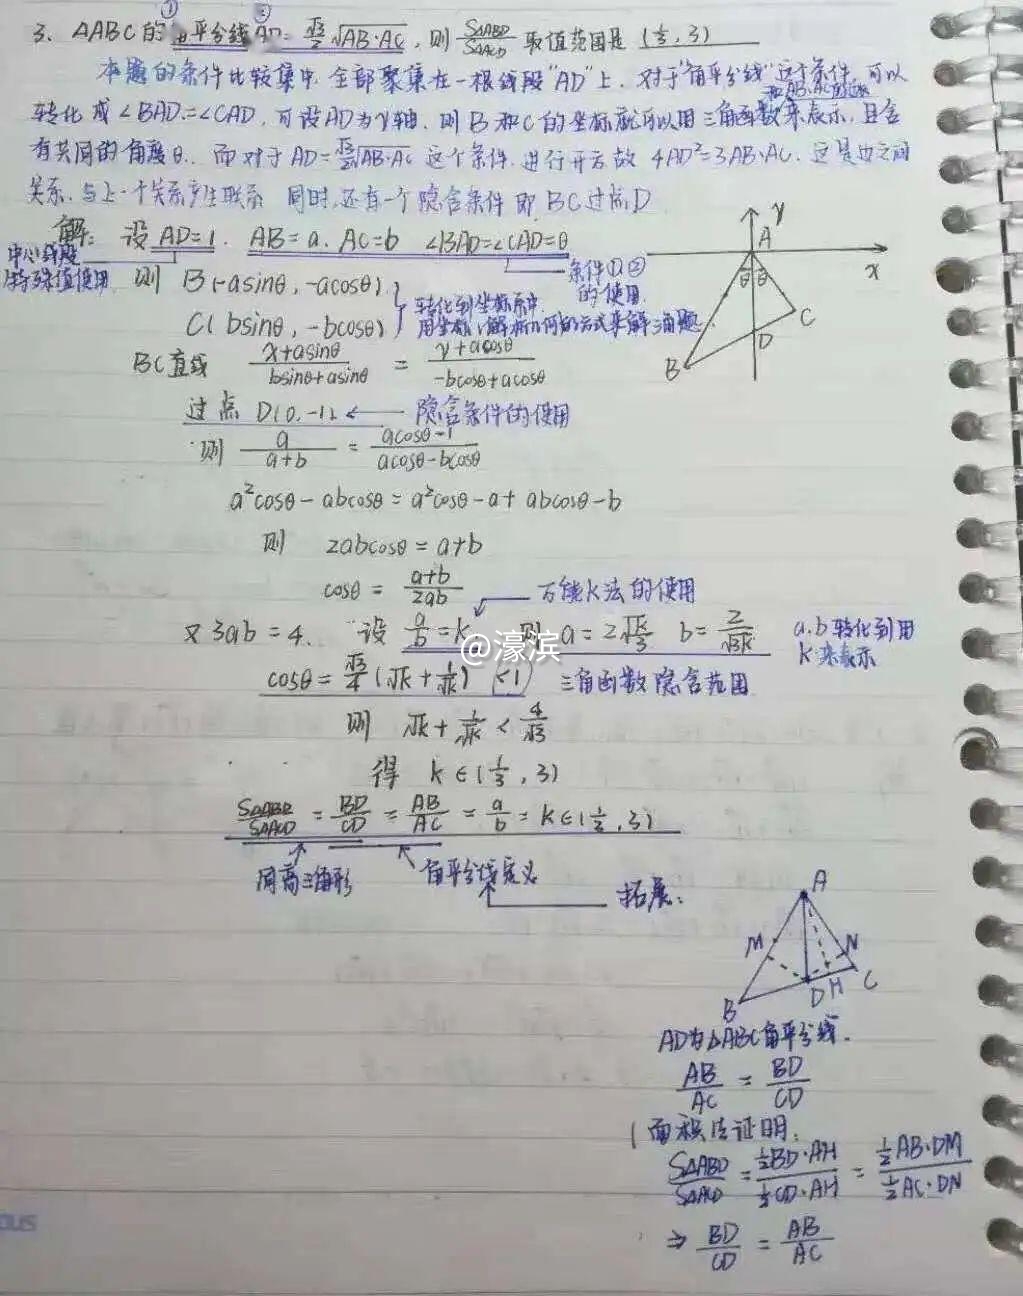 ① ②
3. △ABC的角平分线AD=√3/2 √AB·AC, 则 S△ABD/S△ACD 取值范围是 (1/3, 3)
本题的条件比较集中, 全部聚集在一根线段"AD"上. 对于"角平分线"这个条件, 可以
转化成∠BAD=∠CAD, 可设AD为y轴, 则B和C的坐标就可以用三角函数来表示, 且含
有共同的角度θ. 而对于AD=√3/2 √AB·AC 这个条件, 进行开方故 4AD²=3AB·AC. 这是边之间
关系, 与上一个关系产生联系 同时, 还有一个隐含条件即BC过点D
解: 设AD=1. AB=a. AC=b ∠BAD=∠CAD=θ
中心线段
特殊值使用
条件①②
的使用
则 B(-asinθ, -acosθ)
C(bsinθ, -bcosθ)
转化到坐标系中
用坐标(解析几何的方式来解三角题
y
A
x
θ θ
C
D
B
BC直线 (x+asinθ)/(bsinθ+asinθ) = (y+acosθ)/(-bcosθ+acosθ)
过点 D(0,-1). ← 隐含条件的使用
则 a/(a+b) = (acosθ-1)/(acosθ-bcosθ)
a²cosθ-abcosθ=a²cosθ-a+abcosθ-b
则 2abcosθ=a+b
cosθ=(a+b)/2ab
万能K法的使用
又3ab=4. 设 a/b=k 则 a=2√(k/3) b=2/√3k
a.b转化到用
k来表示
@濠滨
cosθ=√3/4(√k+1/√k) <1 三角函数隐含范围
则 √k+1/√k < 4/√3
得 k∈(1/3, 3)
S△ABD/S△ACD = BD/CD = AB/AC = a/b = k∈(1/3, 3)
同高三角形
角平分线定义
拓展:
A
M
N
B
D
H
C
AD为△ABC角平分线.
AB/AC = BD/CD
(面积法证明:
S△ABD/S△ACD = (½BD·AH)/(½CD·AH) = (½AB·DM)/(½AC·DN)
⇒ BD/CD = AB/AC